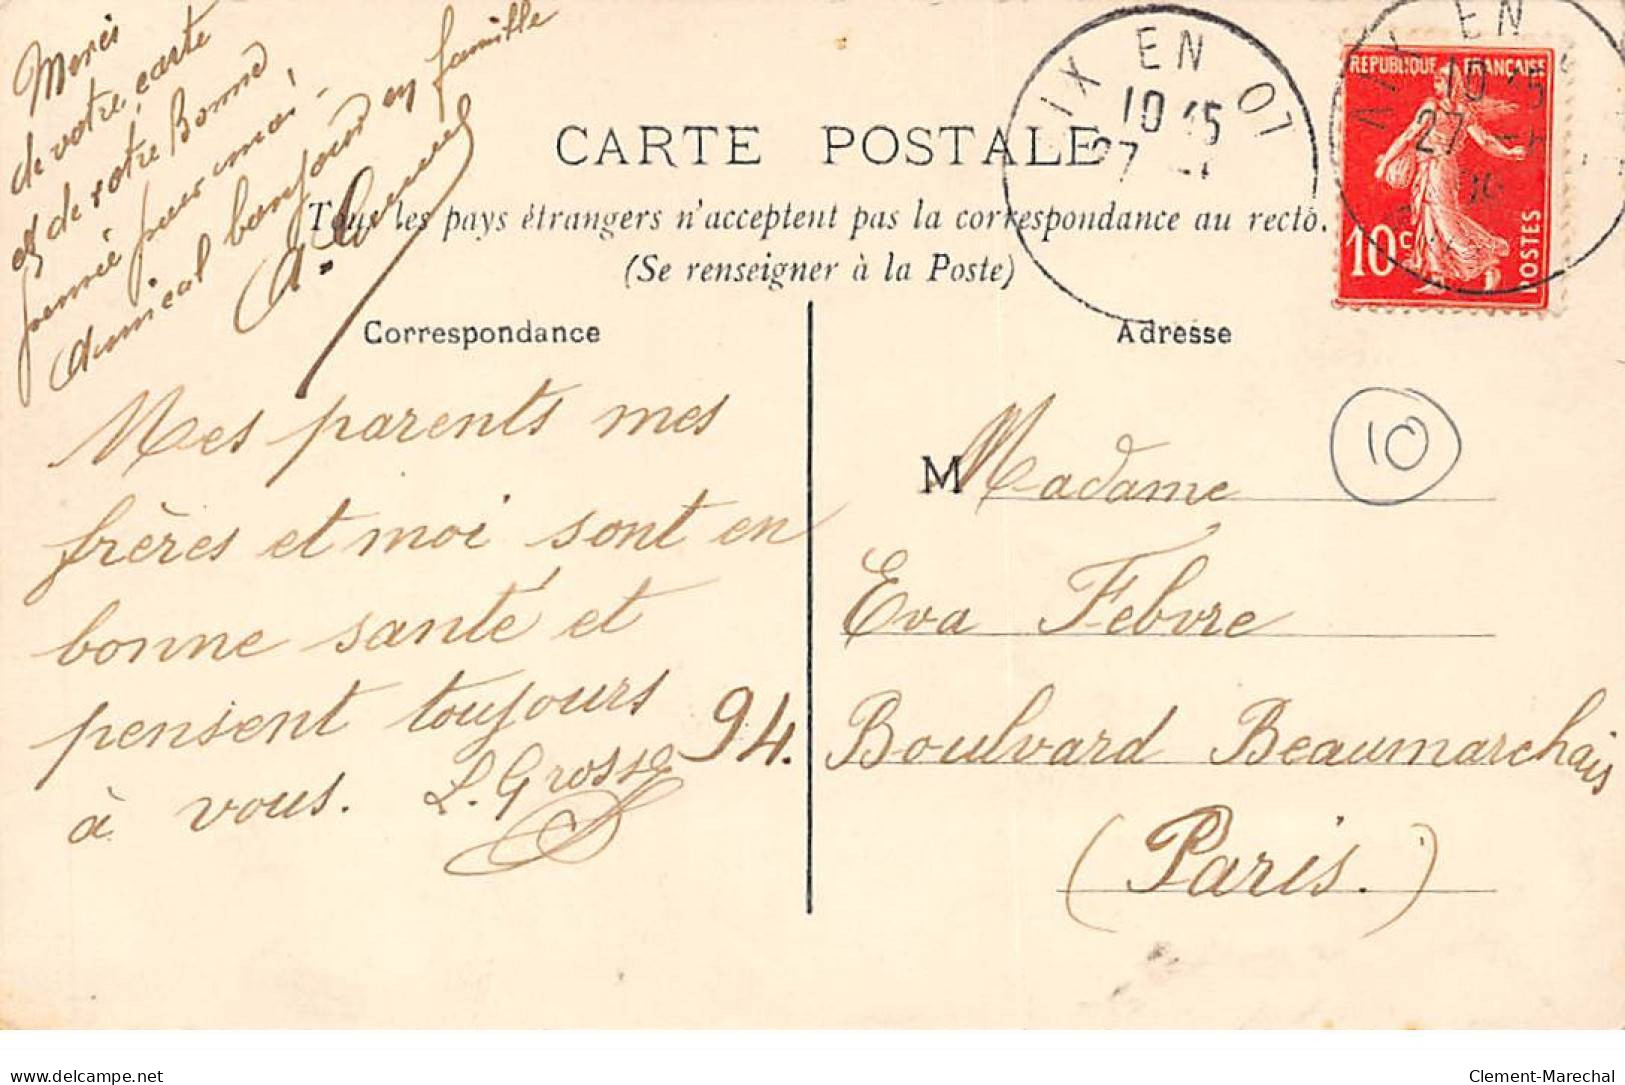 Merci
de votre carte
et de votre Bonne
pensée pour moi.
Amical bonjour en famille
CARTE POSTALE
Tous les pays étrangers n'acceptent pas la correspondance au recto.
(Se renseigner à la Poste)
AIX EN OT
10 15
27
AIX EN
10 15
27
REPUBLIQUE FRANÇAISE
10c
POSTES
Correspondance
Mes parents mes
frères et moi sont en
bonne santé et
pensent toujours
à vous. L. Grosse
Adresse
10
M Madame
Eva Febvre
94. Boulvard Beaumarchais
(Paris.)
delcampe.net
Clement-Marechal